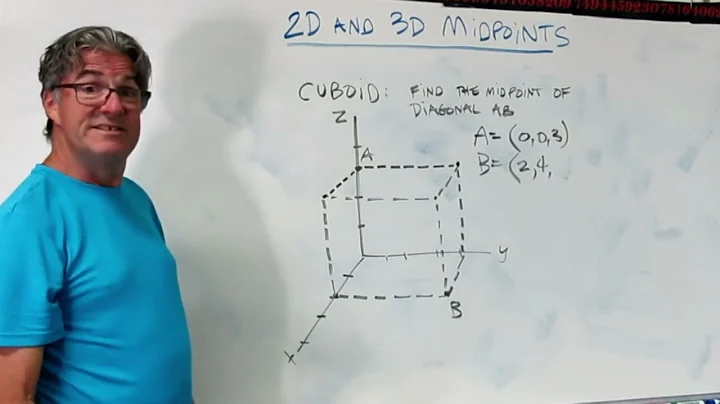 2D AND 3D MIDPOINTS
CUBOID: FIND THE MIDPOINT OF
DIAGONAL AB
A = (0,0,3)
B = (2,4,
Z
A
y
B
x